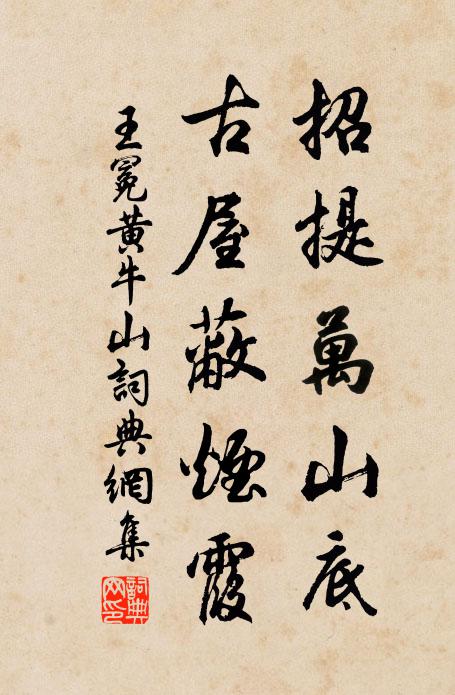 招提萬山底
古屋蔽煙霞
王冕黃牛山詞典網集
詞典網印